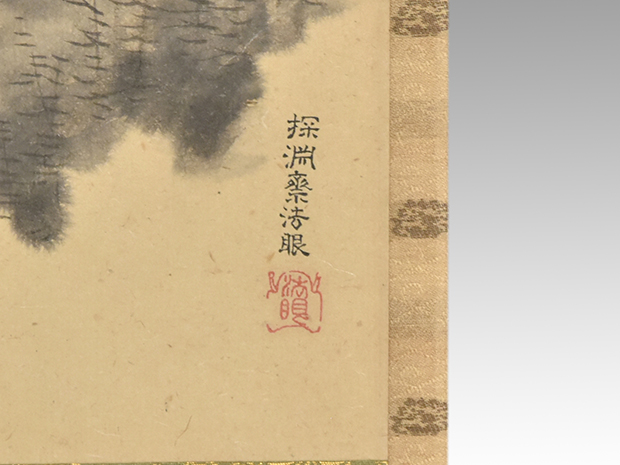 探淵斎法眼